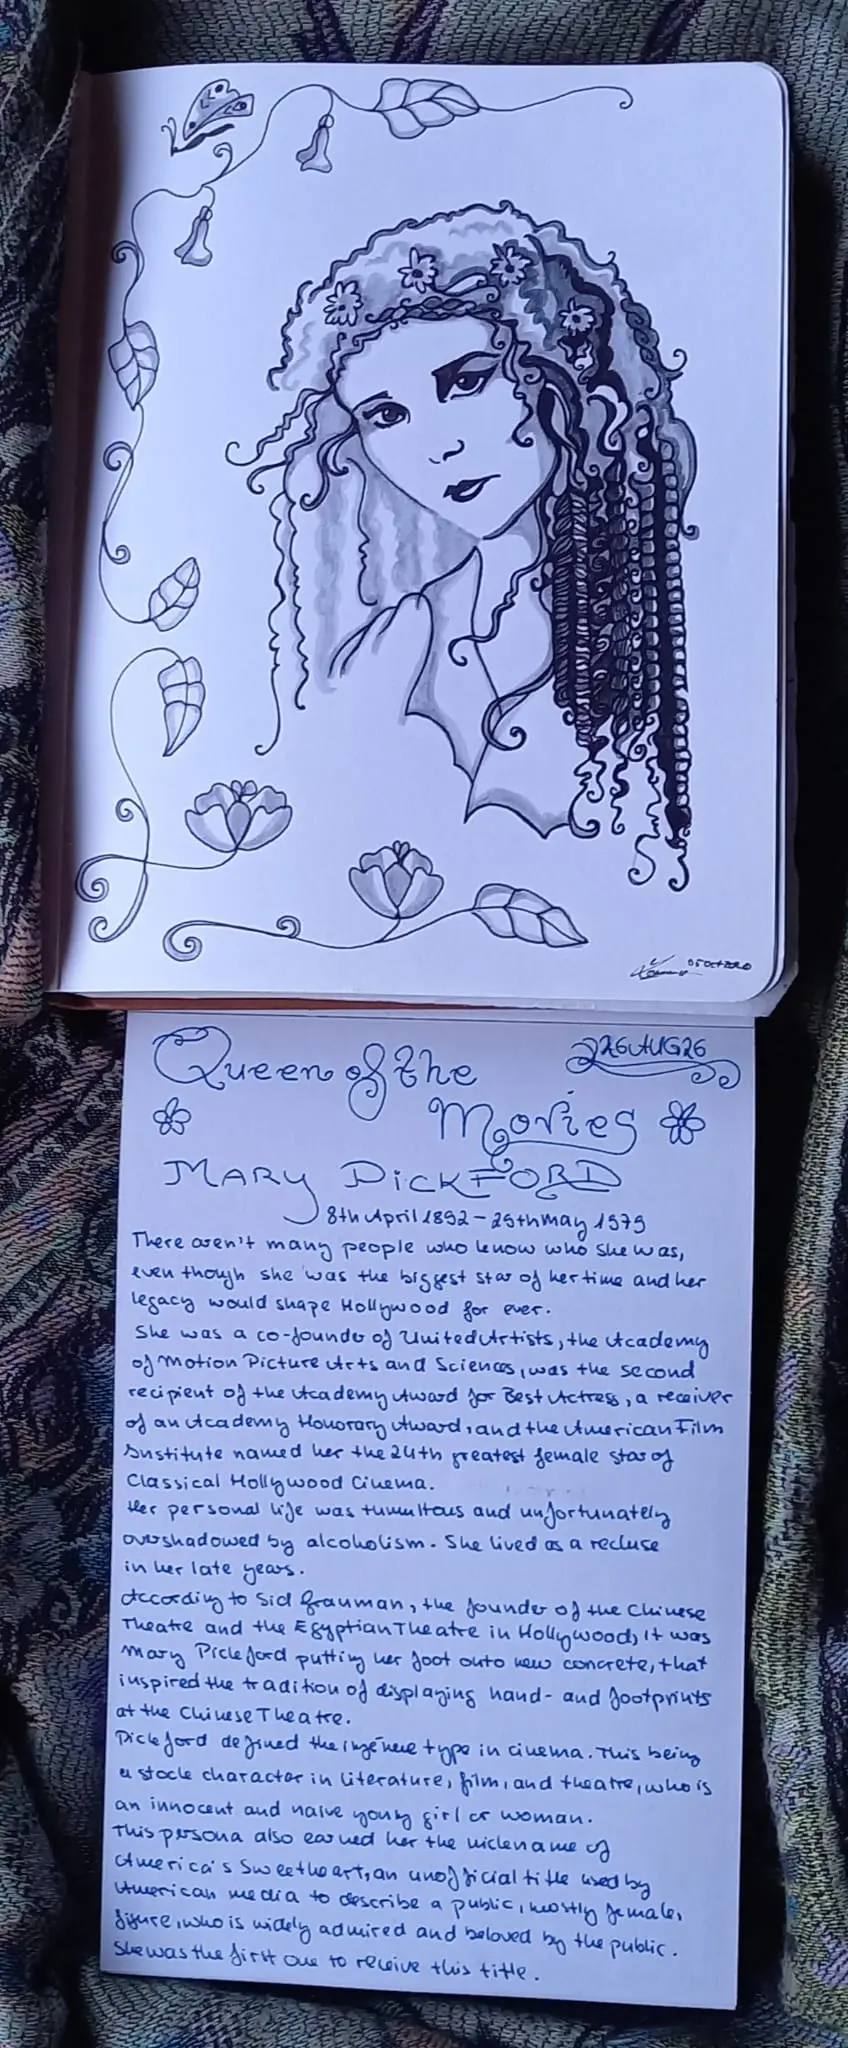 05OCT2020
Queen of the
26AUG26
Movies
MARY PICKFORD
8th April 1892 - 29th May 1979
There aren't many people who know who she was,
even though she was the biggest star of her time and her
legacy would shape Hollywood for ever.
She was a co-founder of United Artists, the Academy
of Motion Picture Arts and Sciences, was the second
recipient of the Academy Award for Best Actress, a receiver
of an Academy Honorary Award, and the American Film
Institute named her the 24th greatest female star of
Classical Hollywood Cinema.
Her personal life was tumultous and unfortunately
overshadowed by alcoholism. She lived as a recluse
in her late years.
According to Sid Grauman, the founder of the Chinese
Theatre and the Egyptian Theatre in Hollywood, it was
Mary Pickford putting her foot onto new concrete, that
inspired the tradition of displaying hand- and footprints
at the Chinese Theatre.
Pickford defined the ingénue type in cinema. This being
a stock character in literature, film, and theatre, who is
an innocent and naive young girl or woman.
This persona also earned her the nickname of
America's Sweetheart, an unofficial title used by
American media to describe a public, mostly female,
figure, who is widely admired and beloved by the public.
She was the first one to receive this title.